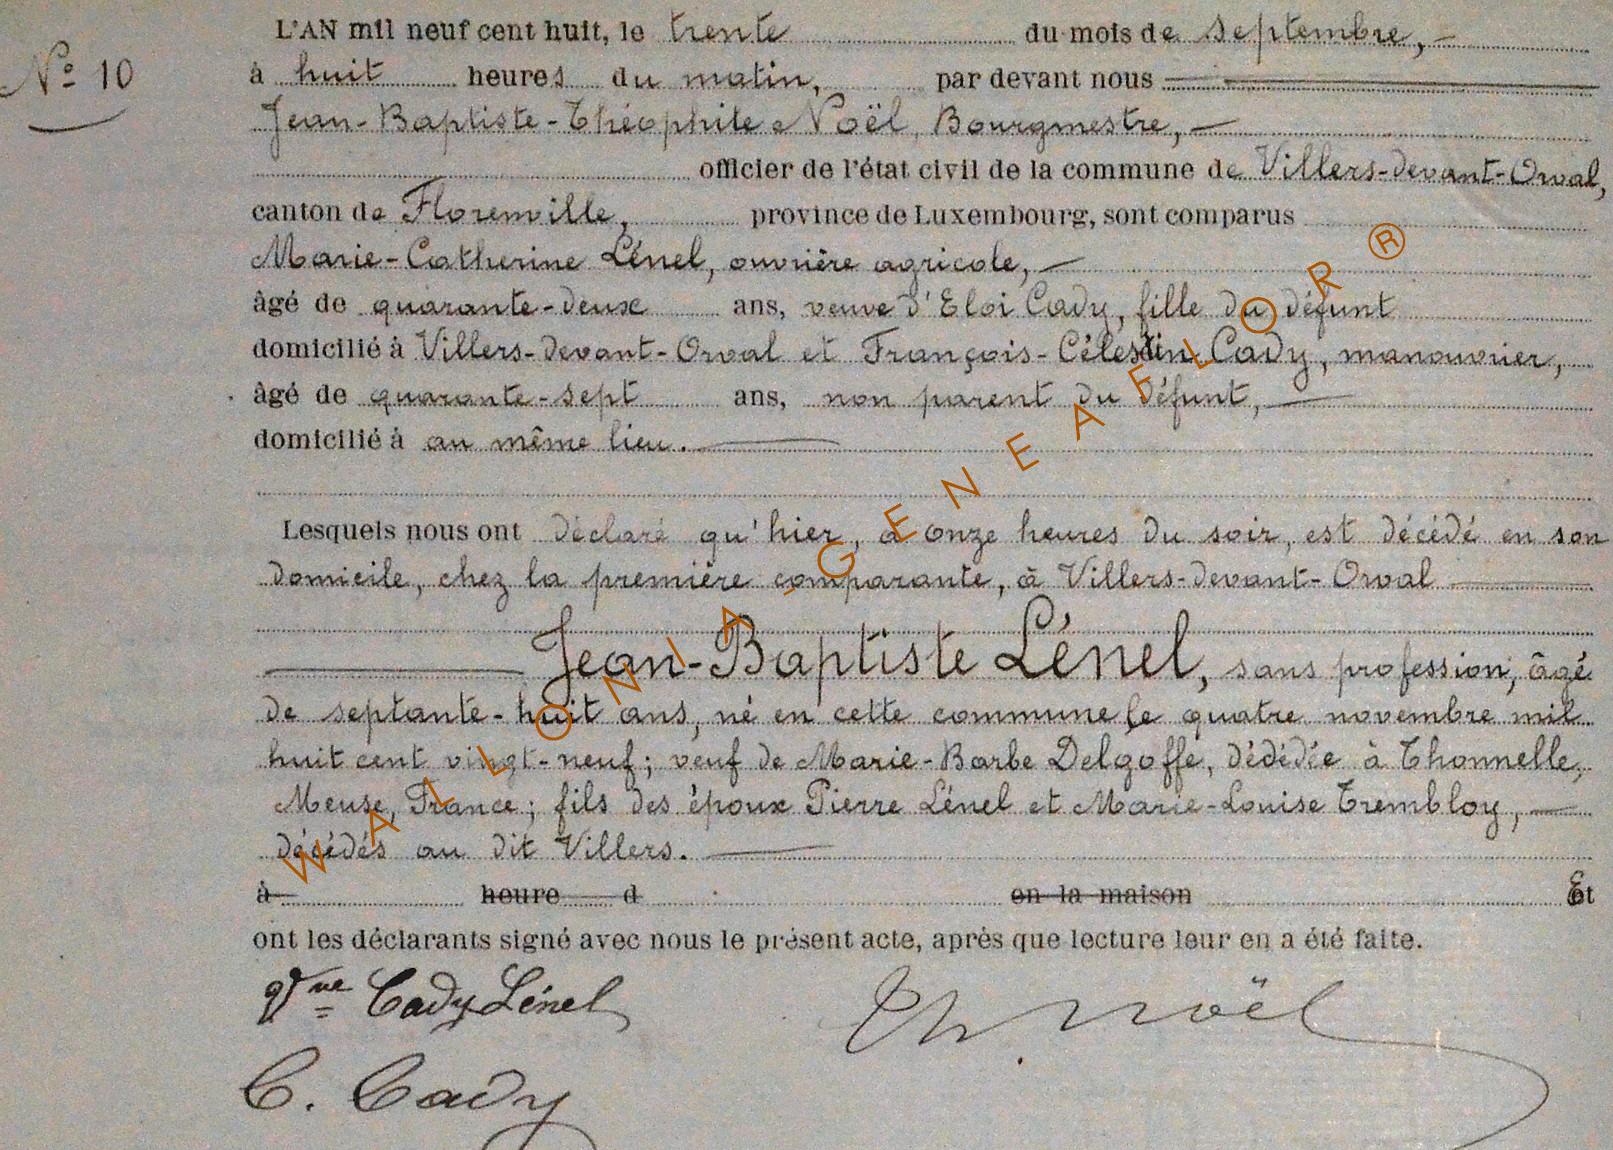 L'AN mil neuf cent huit, le trente du mois de septembre,
N° 10
à huit heures du matin, par devant nous
Jean-Baptiste-Théophile Noël, Bourgmestre,
officier de l'état civil de la commune de Villers-devant-Orval,
canton de Florenville, province de Luxembourg, sont comparus
Marie-Catherine Lénel, ouvrière agricole,
âgé de quarante-deux ans, veuve d'Eloi Cady, fille du défunt
domicilié à Villers-devant-Orval et François-Célestin Cady, manouvrier,
âgé de quarante-sept ans, non parent du défunt,
domicilié à au même lieu.
Lesquels nous ont déclaré qu'hier, à onze heures du soir, est décédé en son
domicile, chez la première comparante, à Villers-devant-Orval
Jean-Baptiste Lénel, sans profession, âgé
de septante-huit ans, né en cette commune le quatre novembre mil
huit cent vingt-neuf; veuf de Marie-Barbe Delgoffe, dédédée à Thonnelle,
Meuse, France; fils des époux Pierre Lénel et Marie-Louise Trembloy,
décédés au dit Villers.
à heure d en la maison Et
ont les déclarants signé avec nous le présent acte, après que lecture leur en a été faite.
Vve Cady Lénel
Th. Noël
C. Cady
WALLONIA-GENEAFLOR®